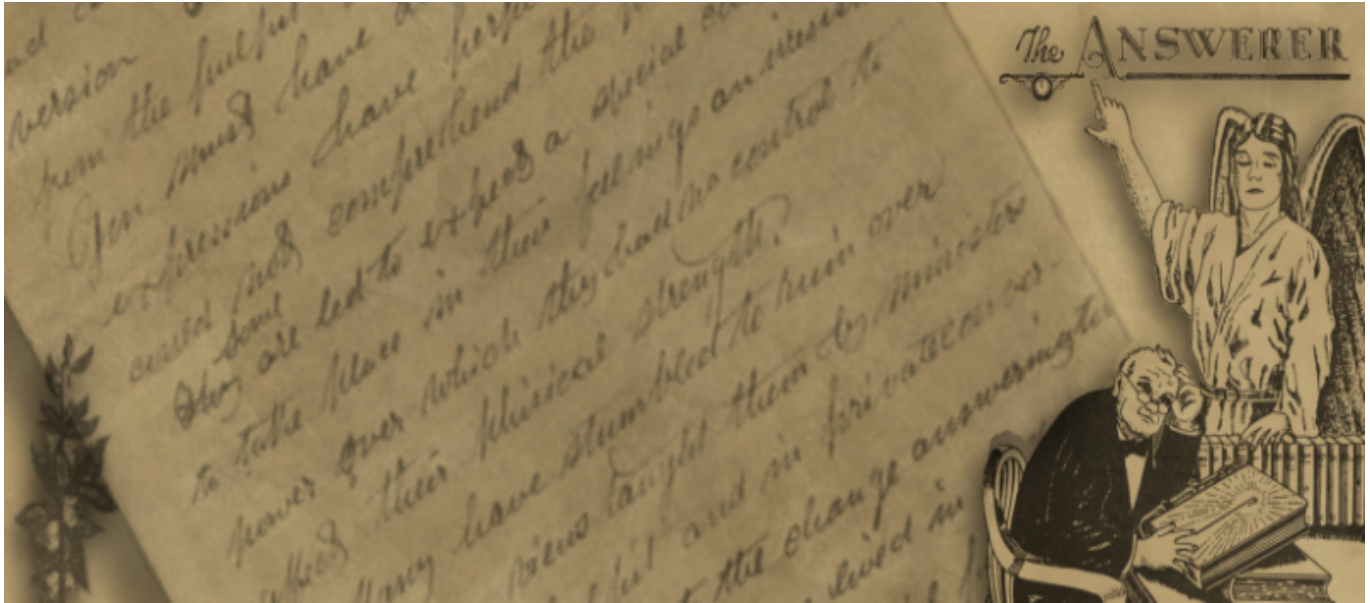 The ANSWERER
version
from the pulpit
You must have
expressions have perf
cerned not comprehend the
Some
they are led to expect a special
to take place in their feelings an
power over which they had no control to
their phisical strength.
Many have stumbled to ruin over
views taught them by ministers
and in private conver-
the change answering to
lived in